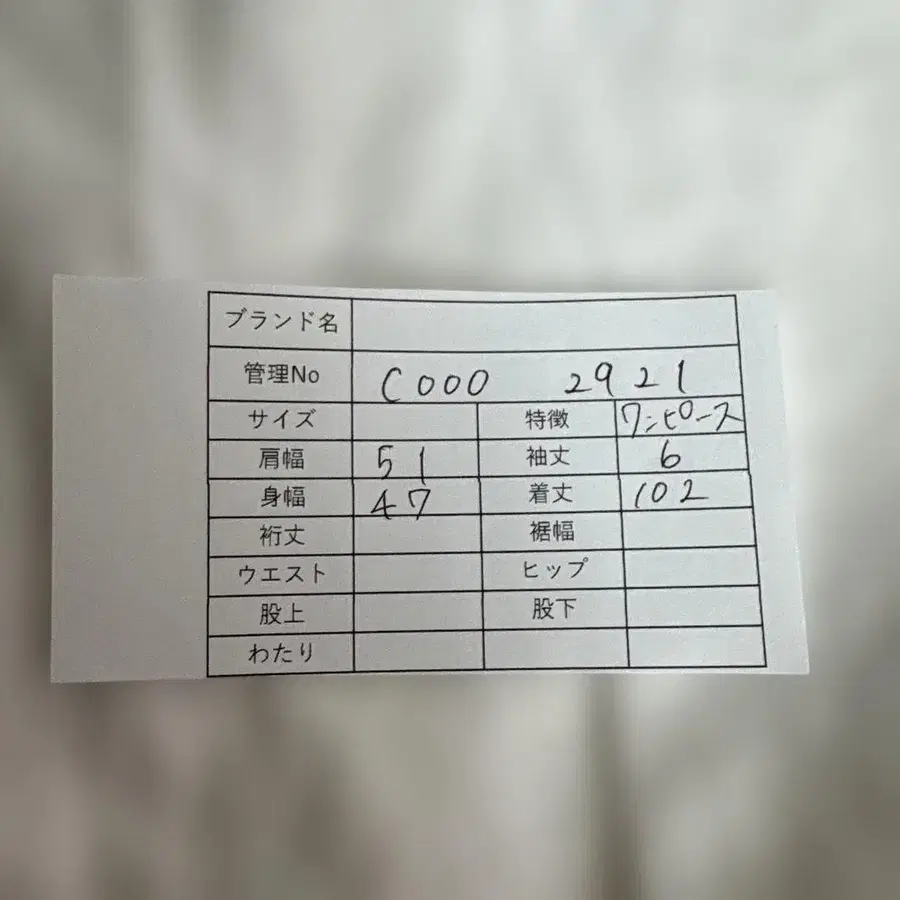 ブランド名
管理No C000 2921
サイズ 特徴 ワンピース
肩幅 51 袖丈 6
身幅 47 着丈 102
裄丈 裾幅
ウエスト ヒップ
股上 股下
わたり